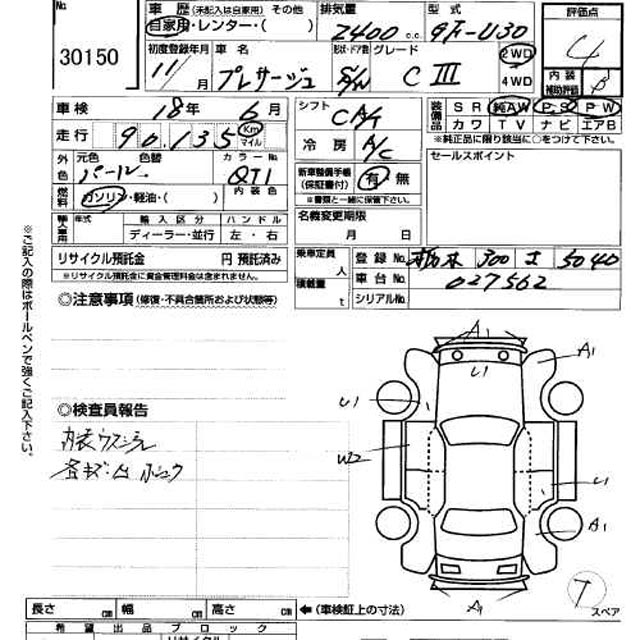 No.
30150
車歴 (未記入は自家用) その他
自家用・レンター・( )
排気量
2400 cc
型式
GF-U30
評価点
4
初度登録年月
11/ 月
車名
プレサージュ
形状・ドア数
S/W
グレード
C III
2WD
4WD
内装
補助評価
B
車検 18年 6月
シフト
CA/T
装備品
SR 純AW P.S P W
カワ TV ナビ エアB
※純正品に限り該当に○をつけて下さい。
走行 90,135 Km
マイル
冷房
A/C
セールスポイント
外色
元色 色替 カラーNo.
パール QT1
新車整備手帳
(保証書付)
有 無
※書類と一緒に保管して下さい。
燃料
ガソリン・軽油・( )
内装色
名義変更期限
月 日
輸入車用
年式 輸入区分 ハンドル
ディーラー・並行 左・右
リサイクル預託金 円 預託済み
※リサイクル預託金に資金管理料金は含まれません。
乗車定員
人
積載量
t
登録No. 栃木 300 さ 5040
車台No. 027562
シリアルNo.
◎注意事項 (修復・不具合箇所および状態等)
◎検査員報告
内装ウスシミ
各キズ凹 ホシュウ
A1
A1
U1
U1
W2
U1
A1
A1
T
スペア
長さ cm 幅 cm 高さ cm
←(車検証上の寸法)
希望出品ブロック
リサイクル
※ご記入の際はボールペンで強くご記入下さい。